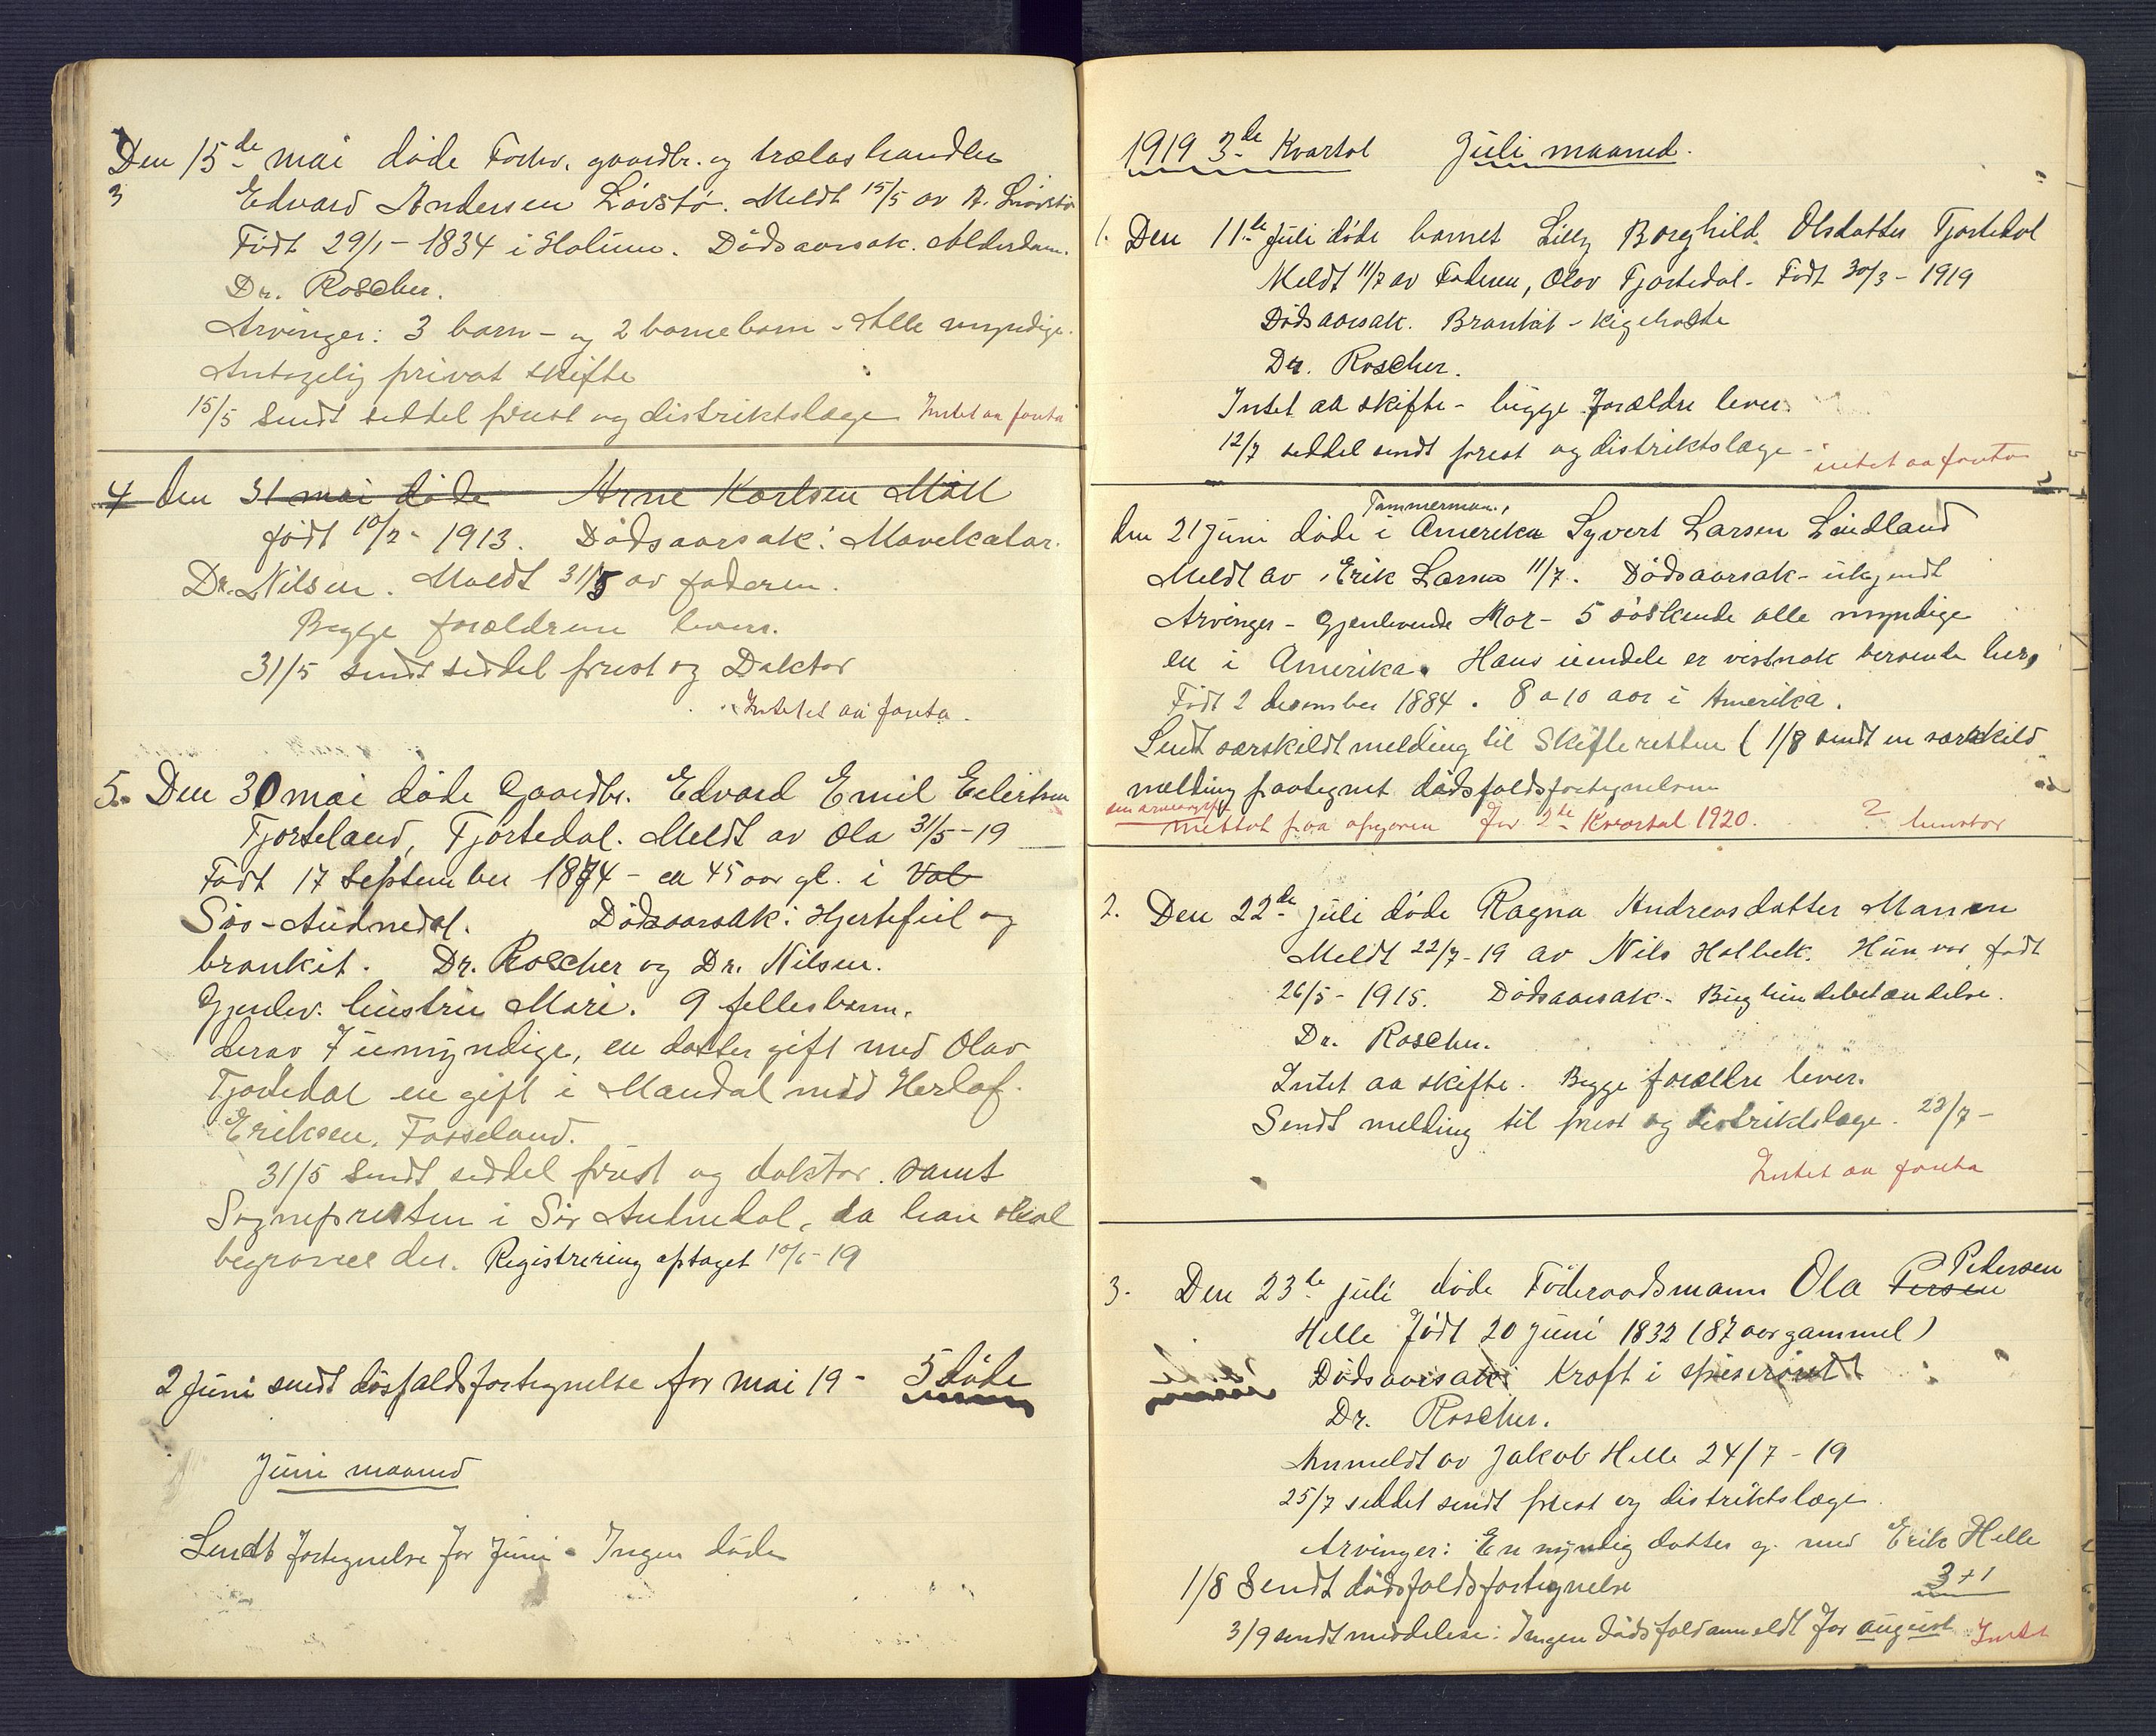 Den 15de mai døde Forhv. gaardbr. og trælasthandler
3 Edvard Andersen Løvstø. Meldt 15/5 av A. Løvstø
Født 29/1 - 1834 i Holum. Dødsaarsak. Alderdom.
Dr. Roscher.
Arvinger: 3 barn - og 2 barnebarn - Alle myndige.
Antagelig privat skifte
15/5 sendt seddel prest og distriktslæge Intet aa forta
4 den 31 mai døde Arne Karlsen Møll
født 10/2 - 1913. Dødsaarsak: Mavekatar.
Dr. Nilsen. Meldt 31/5 av faderen.
Begge forældrene lever.
31/5 sendt seddel prest og Doktor
Intet aa forta.
5. Den 30 mai døde Gaardbr. Edvard Emil Eilertsen
Tjorteland, Tjortedal. Meldt av Ola 31/5-19
Født 17 September 1874 - ca 45 aar gl. i Val
Sør-Audnedal. Dødsaarsak: Hjertefeil og
bronkit. Dr. Roscher og Dr. Nilsen.
Gjenlev. hustru Mari. 9 fellesbarn.
derav 7 umyndige, en datter gift med Olav
Tjortedal en gift i Mandal med Herlof.
Eriksen, Fosseland.
31/5 sendt seddel prest og doktor. samt
Sognepresten i Sør Audnedal, da han skal
begraves der. Registrering optaget 10/6-19
2 juni sendt dødsfaldsfortegnelse for mai 19 - 5 døde
Juni maaned
Sendt fortegnelse for juni - Ingen døde
1919 3de Kvartal Juli maaned.
1. Den 11te juli døde barnet Lilly Borghild Olsdatter Tjortedal
Meldt 11/7 av Faderen, Olav Tjortedal - Født 30/3 - 1919
Dødsaarsak. Bronkit - kighoste
Dr. Roscher.
Intet aa skifte - begge forældre lever.
12/7 seddel sendt prest og distriktslæge - intet aa forta
Tømmermand,
den 21 juni døde i Amerika Syvert Larsen Lindland
Meldt av Erik Larsen 11/7. Dødsaarsak - ukjendt
Arvinger - Gjenlevende Mor - 5 søskende alle myndige
en i Amerika. Hans er vistnok beroende her,
Født 2 desember 1884. 8 a 10 aar i Amerika.
Sendt særskildt melding til Skifteretten (1/8 sendt en særskild
melding paategnet dødsfaldsfortegnelsen
paa opgaven for 2de Kvartal 1920.
2. Den 22de juli døde Ragna Andreasdatter Mannen
Meldt 22/7-19 av Nils Holbek. Hun var født
26/5 - 1915. Dødsaarsak - Bughindebetændelse.
Dr. Roscher.
Intet aa skifte. Begge forældre lever.
Sendt melding til prest og distriktslæge. 23/7 -
Intet aa forta
3. Den 23de juli døde Føderaadsmann Ola Persen Pedersen
Helle født 20 juni 1832 (87 aar gammel)
Dødsaarsak: Kræft i spiserøret
Dr. Roscher.
Anmeldt av Jakob Helle 24/7 - 19
25/7 seddel sendt prest og distriktslæge.
Arvinger: En myndig datter g. med Erik Helle
1/8 Sendt dødsfaldsfortegnelse 3+1
3/9 sendt meddelese: Ingen dødsfald anmeldt for august Intet